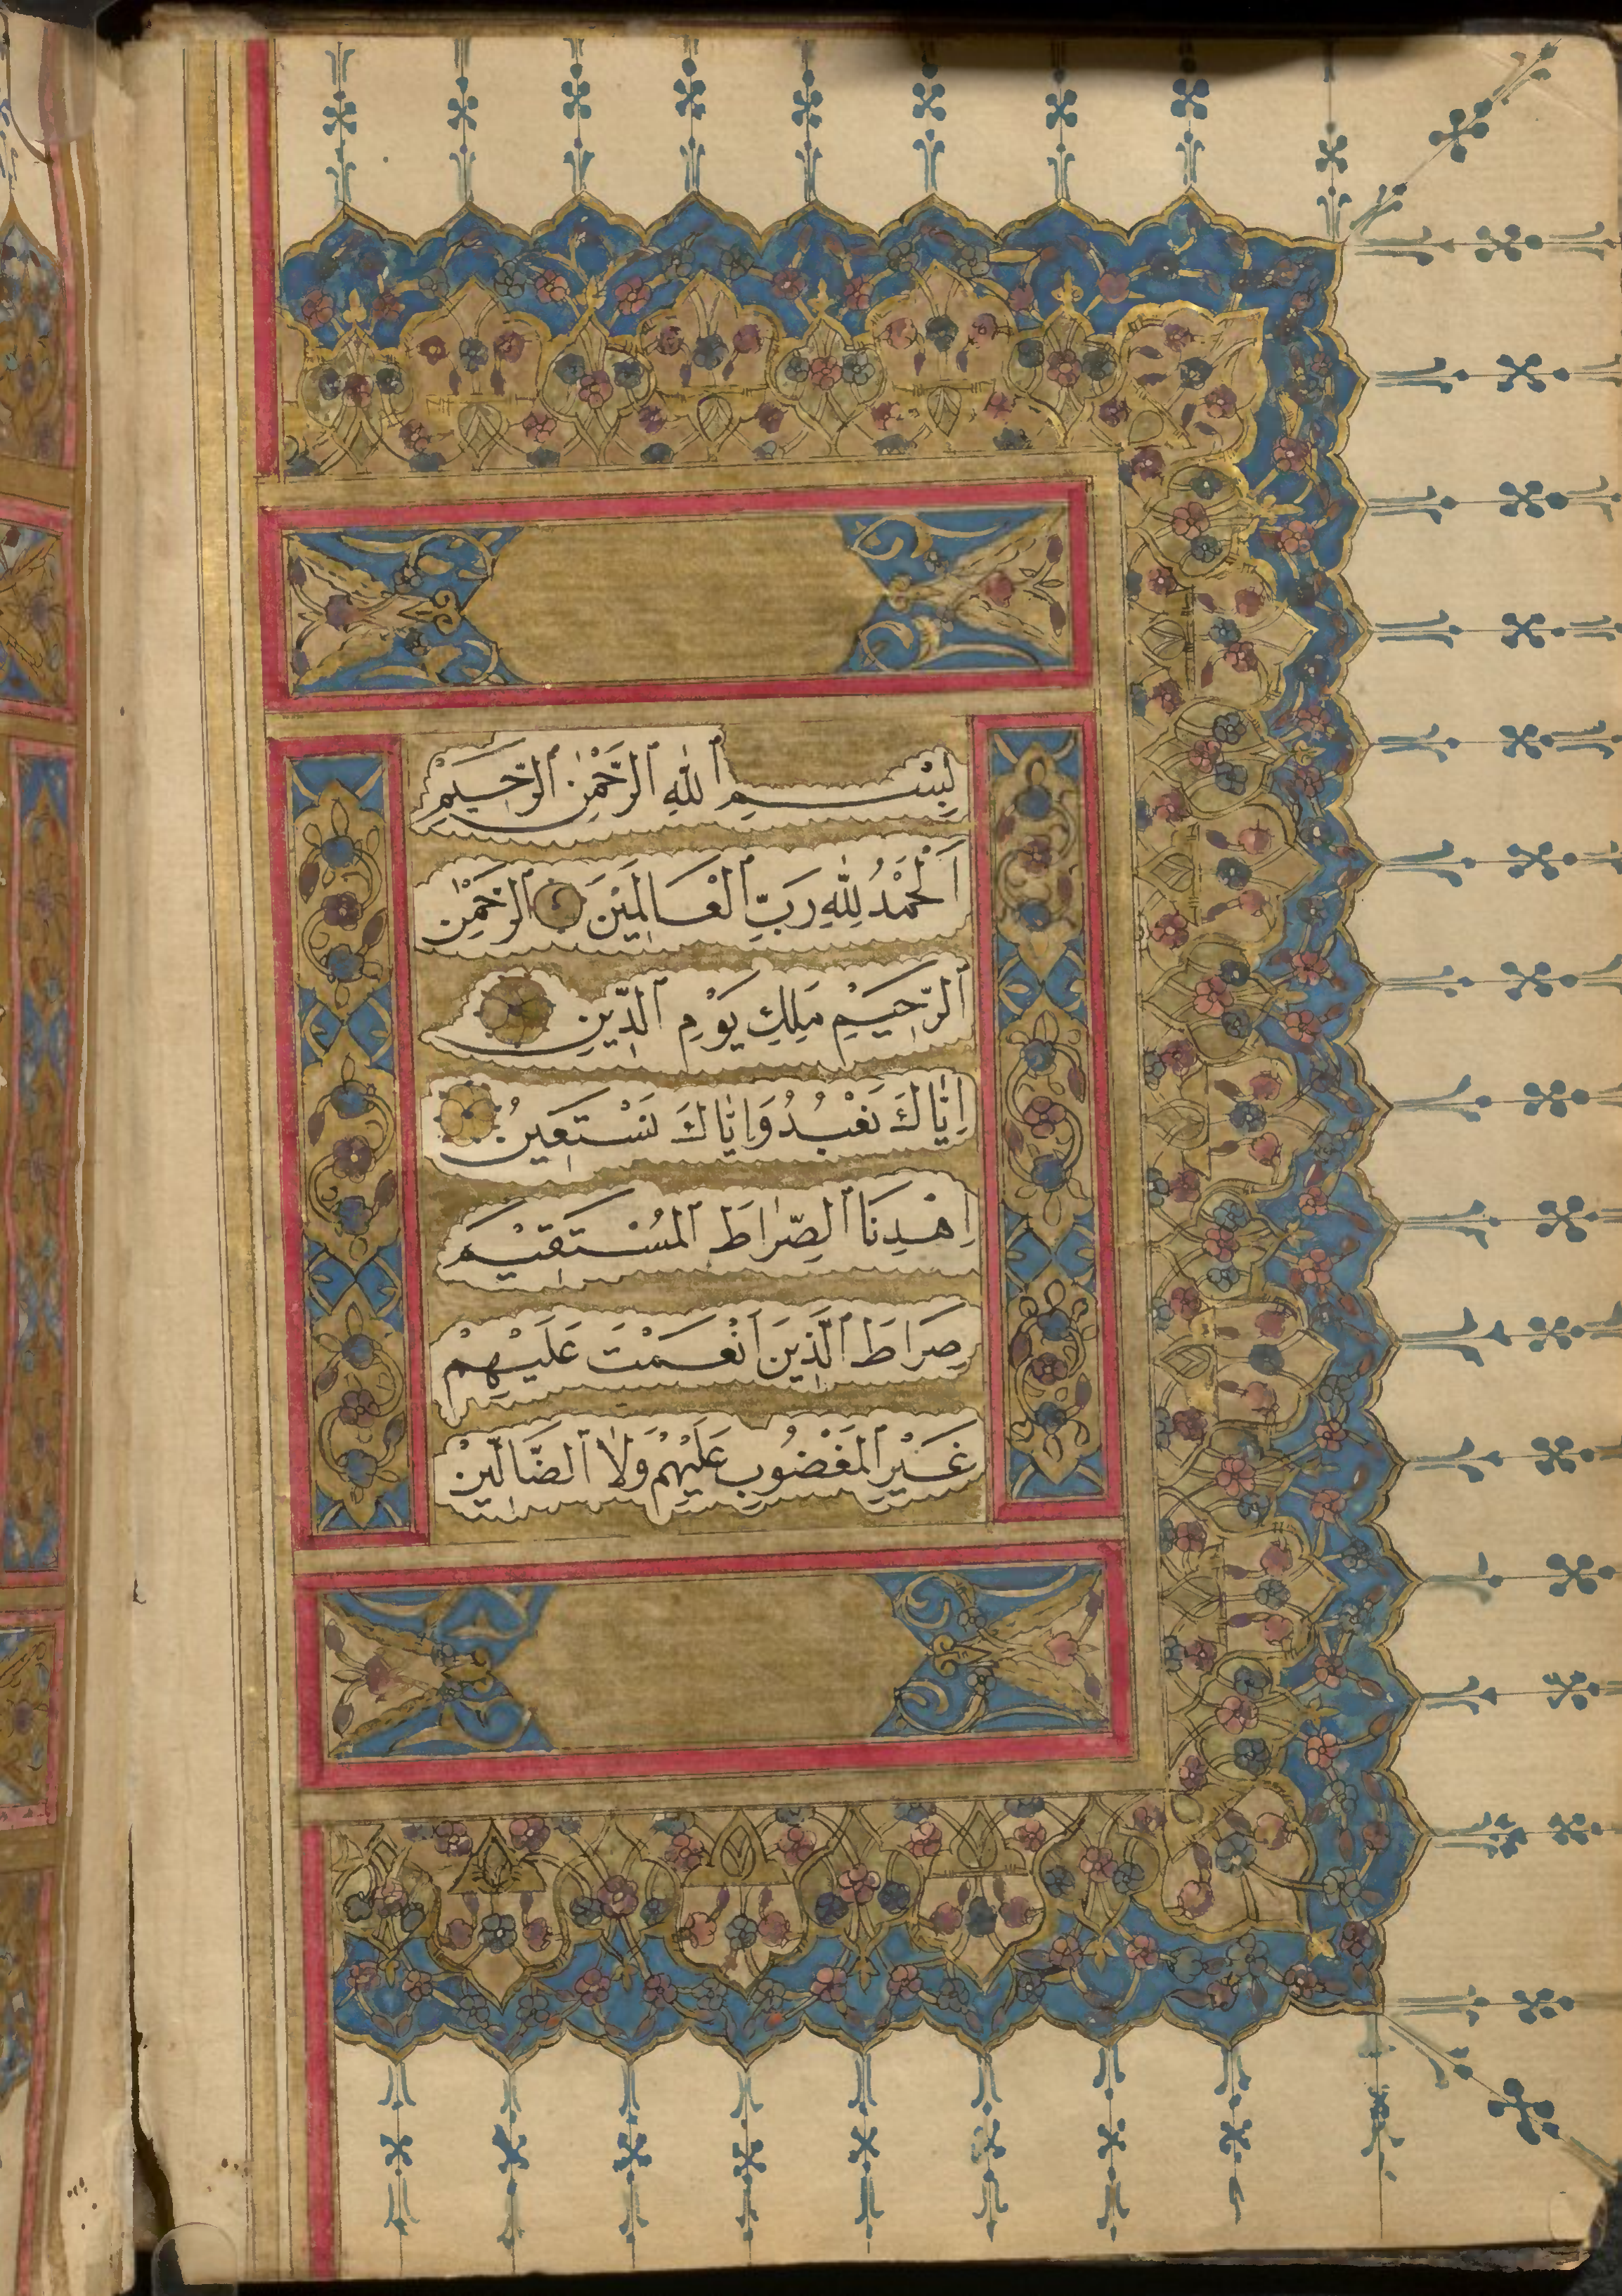 بِسْمِ ٱللّٰهِ ٱلرَّحْمٰنِ ٱلرَّحِيمِ
اَلْحَمْدُ لِلّٰهِ رَبِّ ٱلْعَالَمِيْنَ ٱلرَّحْمٰنِ
ٱلرَّحِيْمِ مَلِكِ يَوْمِ ٱلدِّينِ
اِيَّاكَ نَعْبُدُ وَاِيَّاكَ نَسْتَعِينُ
اِهْدِنَا ٱلصِّرَاطَ ٱلْمُسْتَقِيْمَ
صِرَاطَ ٱلَّذِينَ اَنْعَمْتَ عَلَيْهِمْ
غَيْرِ ٱلْمَغْضُوبِ عَلَيْهِمْ وَلَا ٱلضَّالِّيْنَ